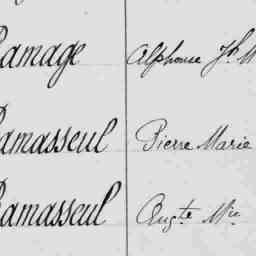 Ramage Alphonse Jh M
Ramasseul Pierre Marie
Ramasseul Augte Mie